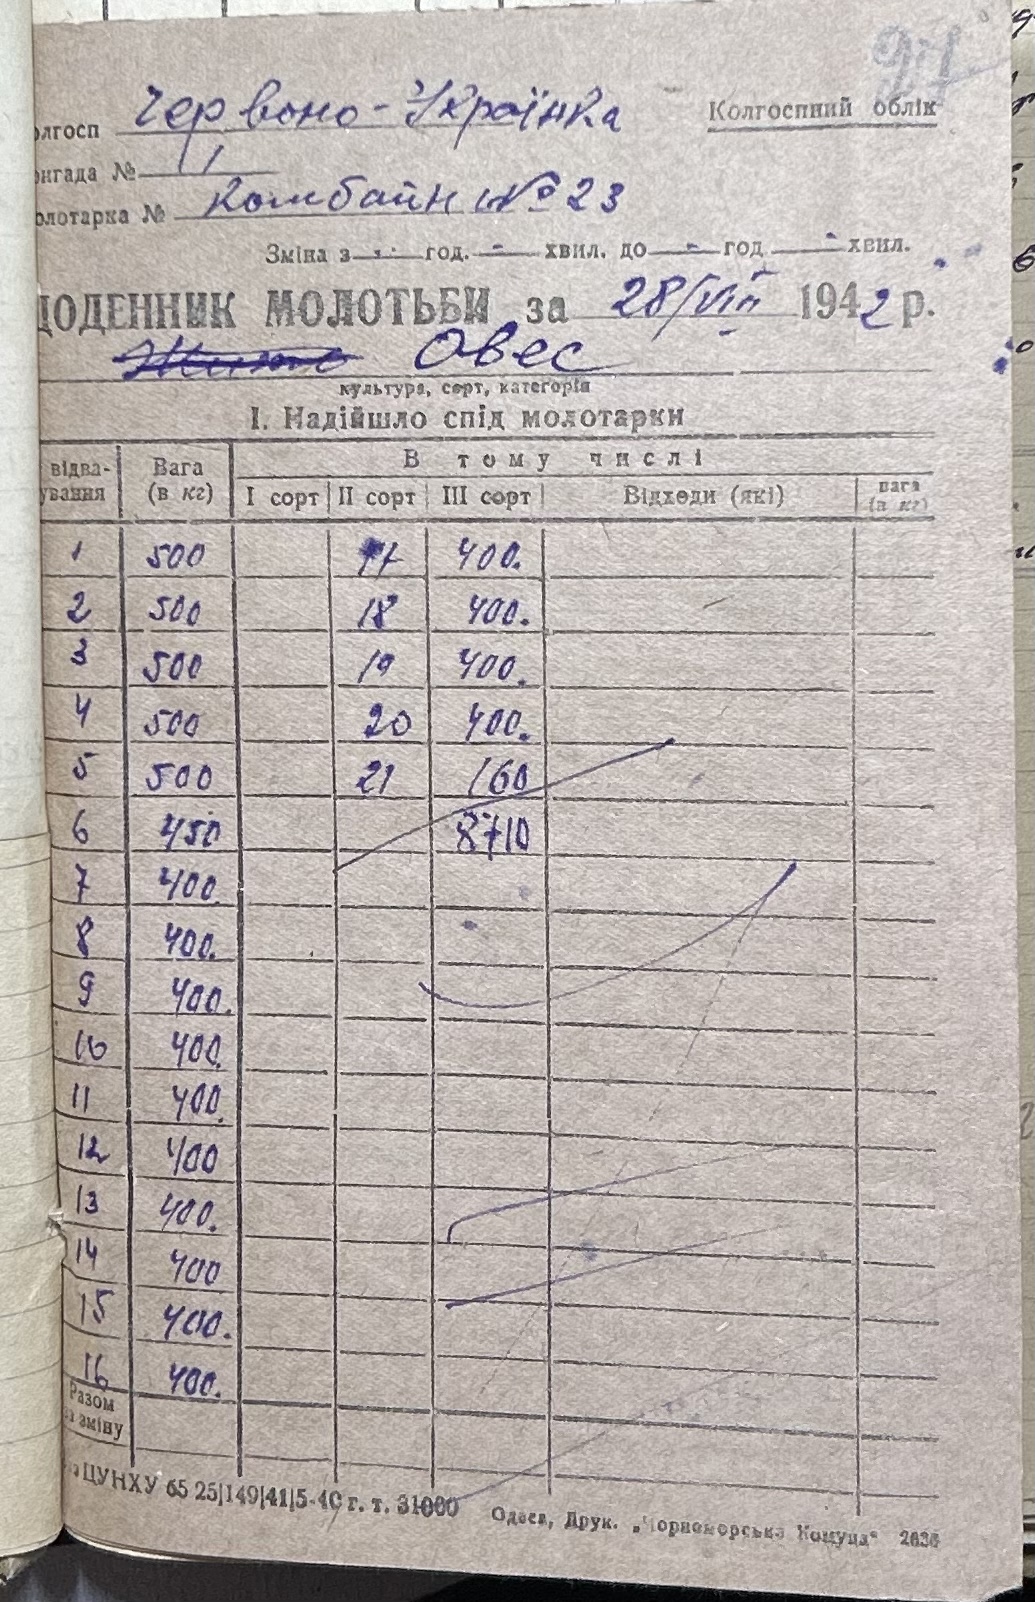 Колгоспний облік
олгосп Червоно-Українка
ригада № 1
олотарка № Комбайн № 23
Зміна з - год. - хвил. до - год - хвил.
ЩОДЕННИК МОЛОТЬБИ за 28/VIII 1942 р.
Жито Овес
культура, сорт, категорія
I. Надійшло спід молотарки
відва-
ування
Вага
(в кг)
В тому числі
I сорт II сорт III сорт Відходи (які) вага
(в кг)
1 500 17 400.
2 500 18 400.
3 500 19 400.
4 500 20 400.
5 500 21 160
6 450 8710
7 400
8 400.
9 400.
10 400.
11 400.
12 400
13 400.
14 400
15 400.
16 400.
Разом
за зміну
ЦУНХУ 65 25|149|41|5-40 г. т. 31000 Одеса, Друк. „Чорноморська Комуна“